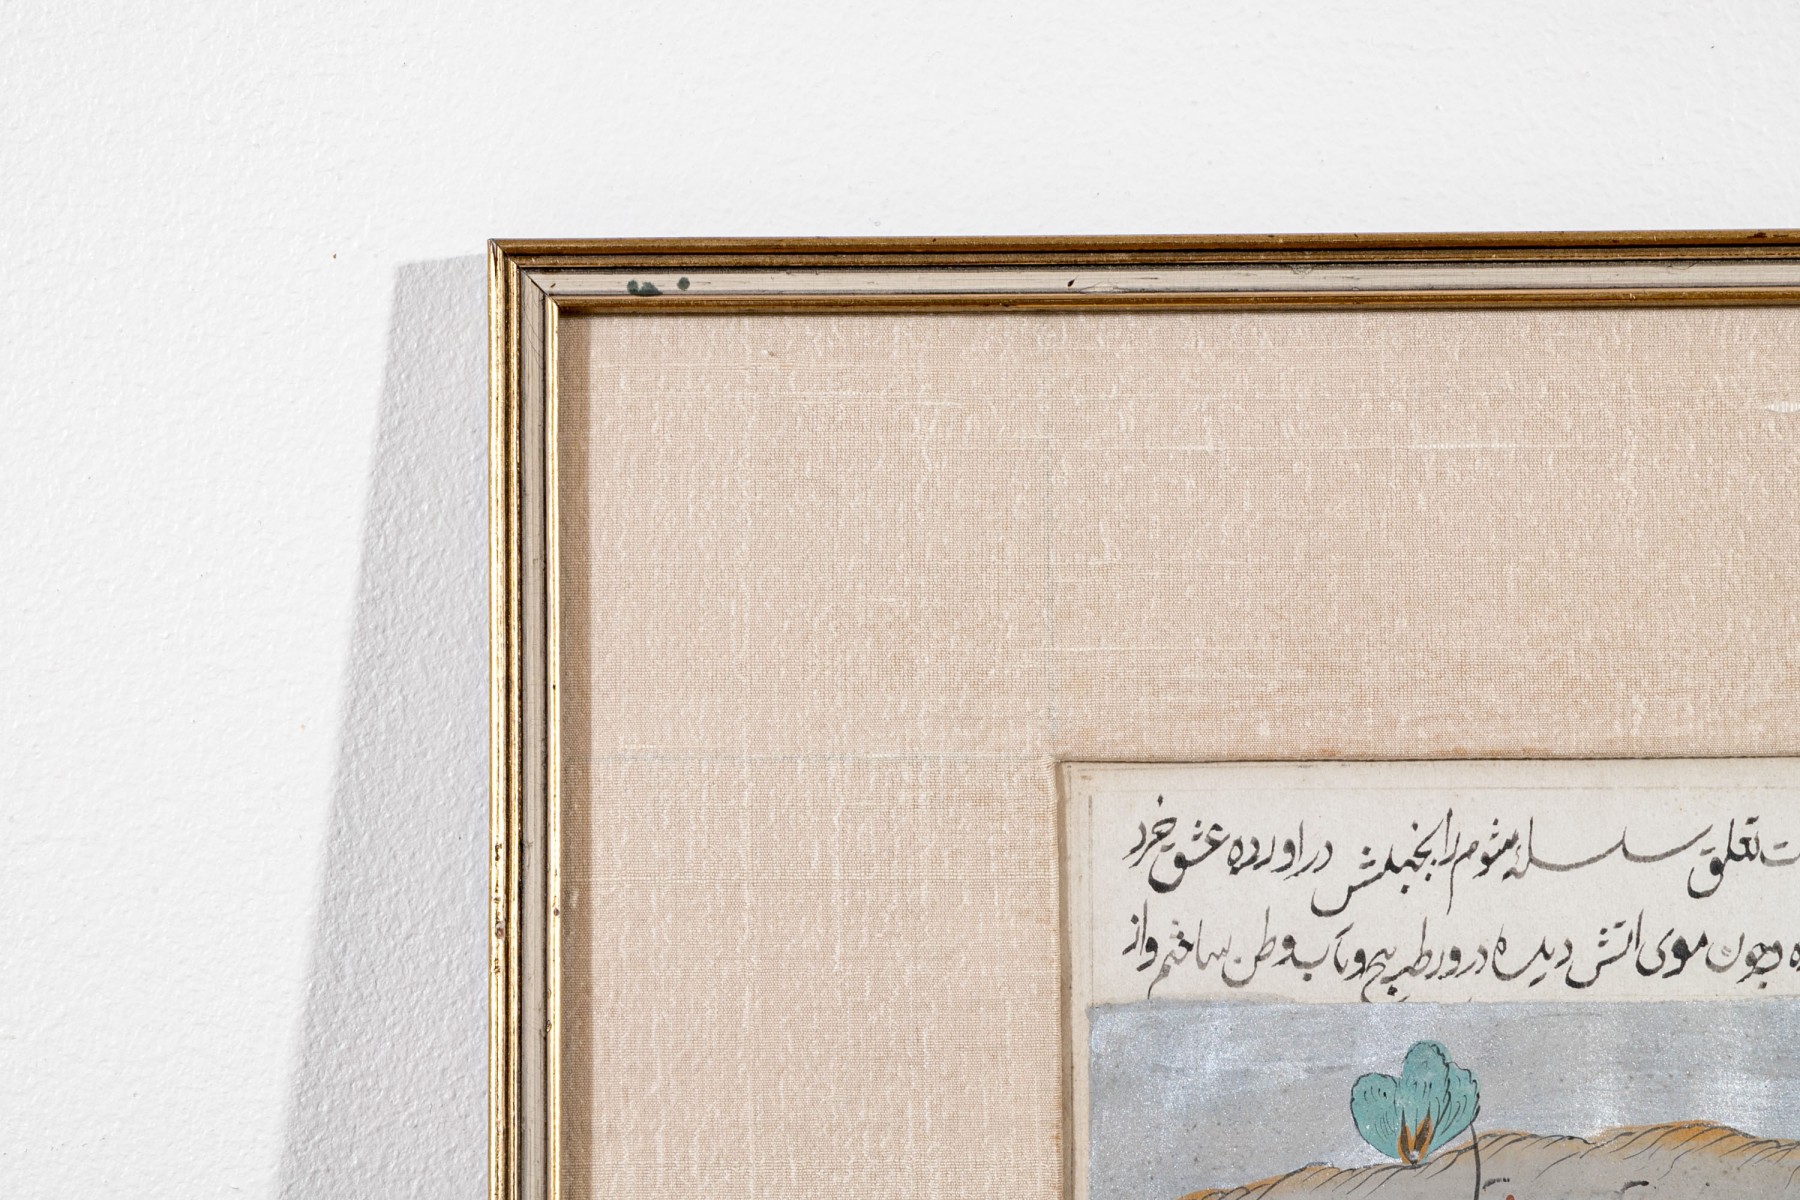 تعلق سلسله شوم را بخبلش در آورده عشق خرد
و چون موی اتش دیده در ورطه پیچ و تاب وطن ساختم و از